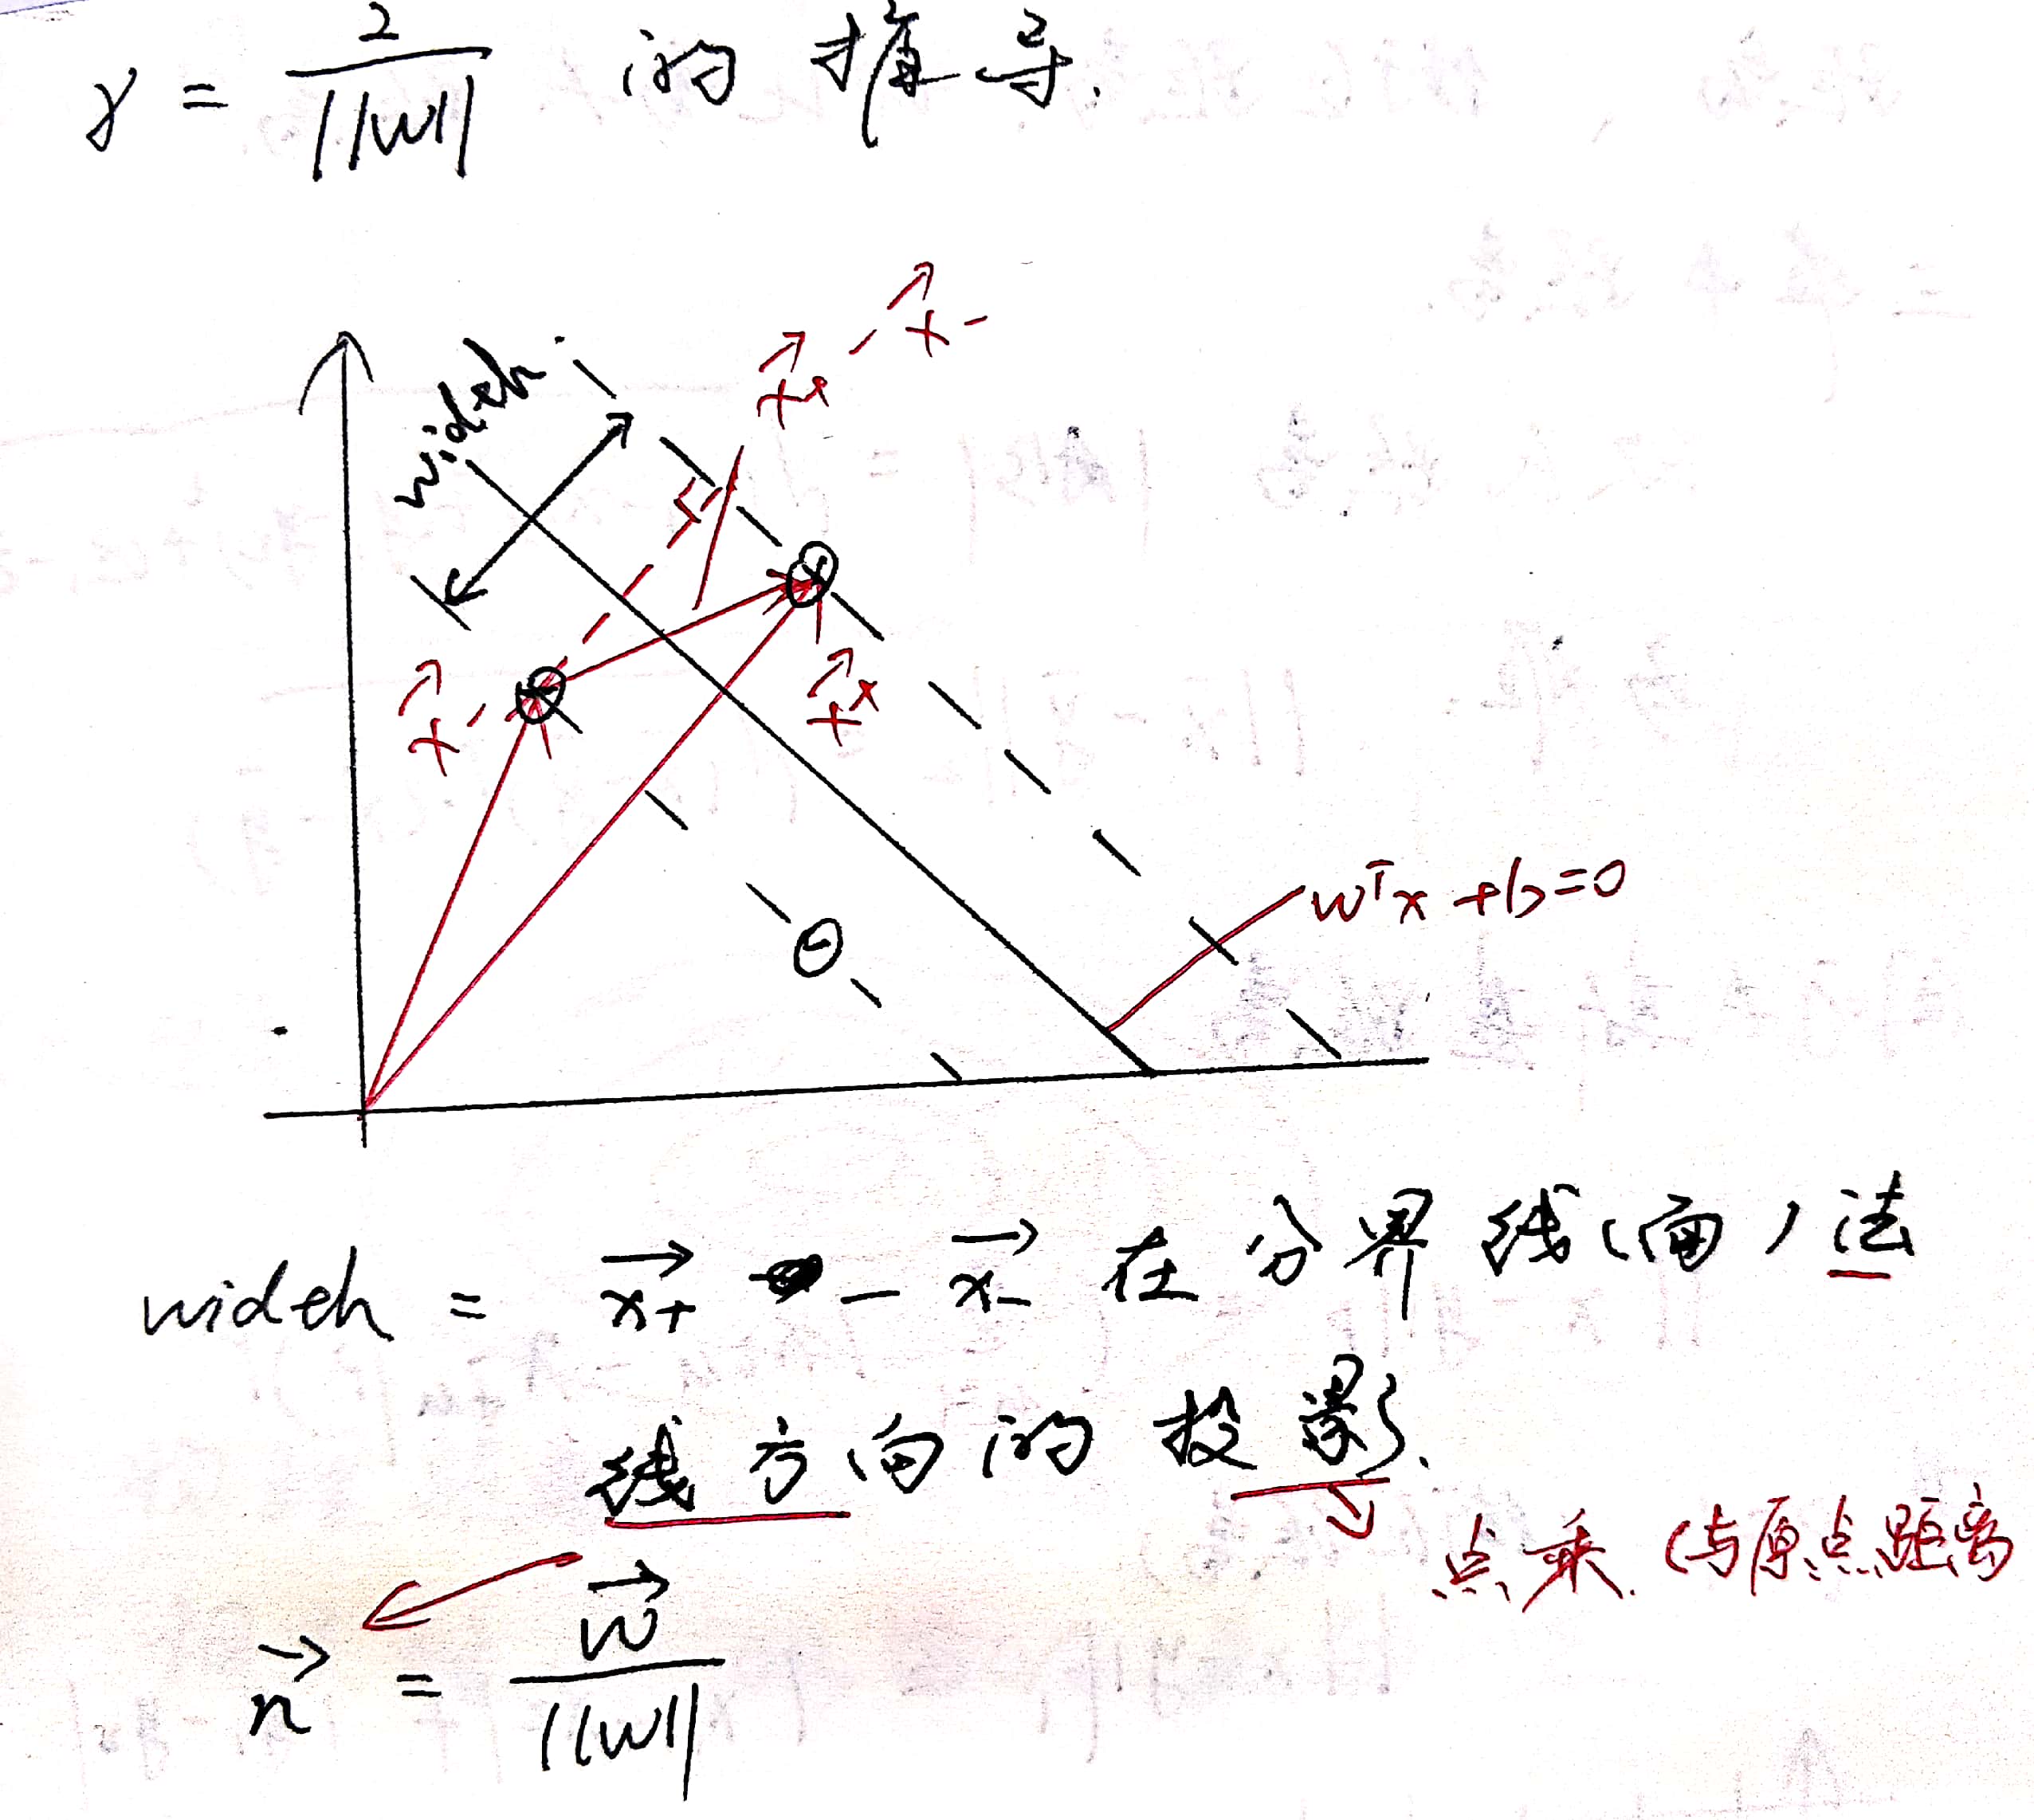 γ = 2/||w|| 的推导.
x⃗₊ - x⃗₋
wideh
x⃗₋
x⃗₊
wᵀx + b = 0
wideh = x₊⃗ - x₋⃗ 在分界线(面)法
线方向的投影.
点乘. (与原点距离
n⃗ = w⃗/||w||